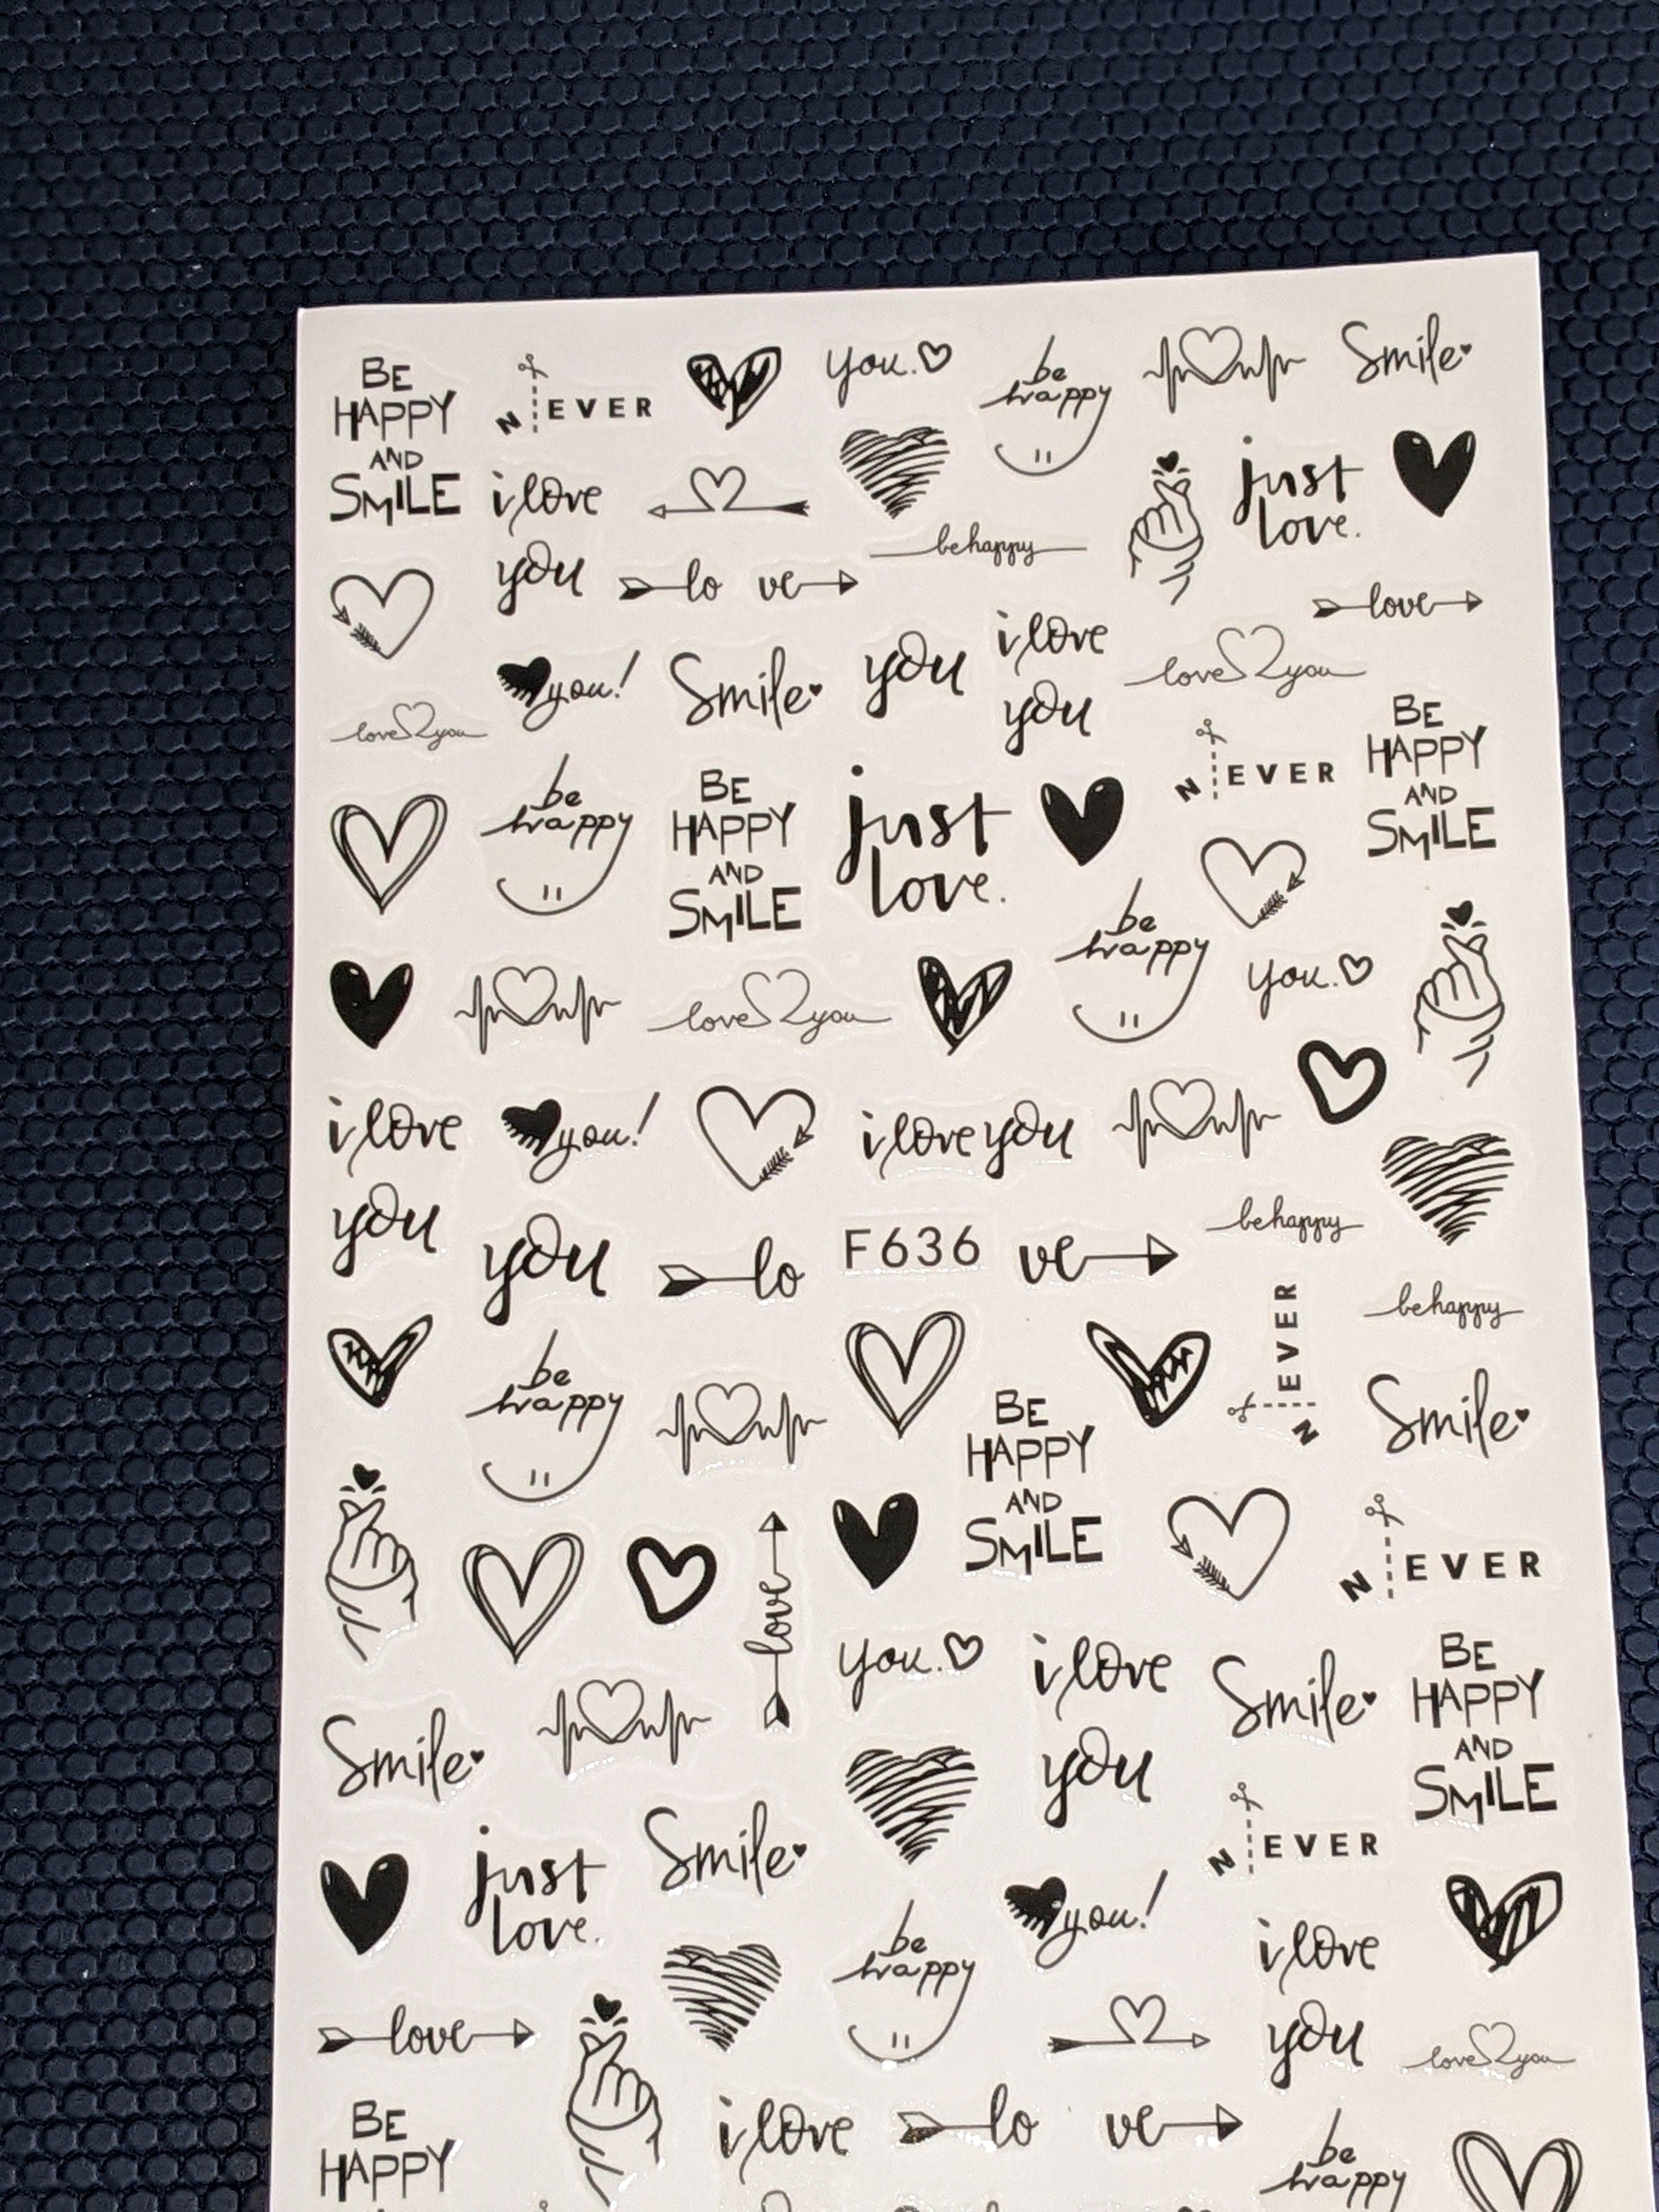 BE
HAPPY
AND
SMILE
N EVER
you.
be
happy
Smile
i love
you
just
love.
be happy
lo ve
love
you!
Smile
you
i love
you
love you
love you
be
happy
BE
HAPPY
AND
SMILE
just
love.
N EVER
BE
HAPPY
AND
SMILE
love you
be
happy
you.
i love
you
you!
i love you
you
lo
F636
ve
be happy
be happy
be
happy
BE
HAPPY
AND
SMILE
N EVER
Smile
love
N EVER
you.
i love
you
Smile
BE
HAPPY
AND
SMILE
Smile
just
love.
Smile
N EVER
you!
be
happy
i love
you
love
love you
BE
HAPPY
i love
lo ve
be
happy